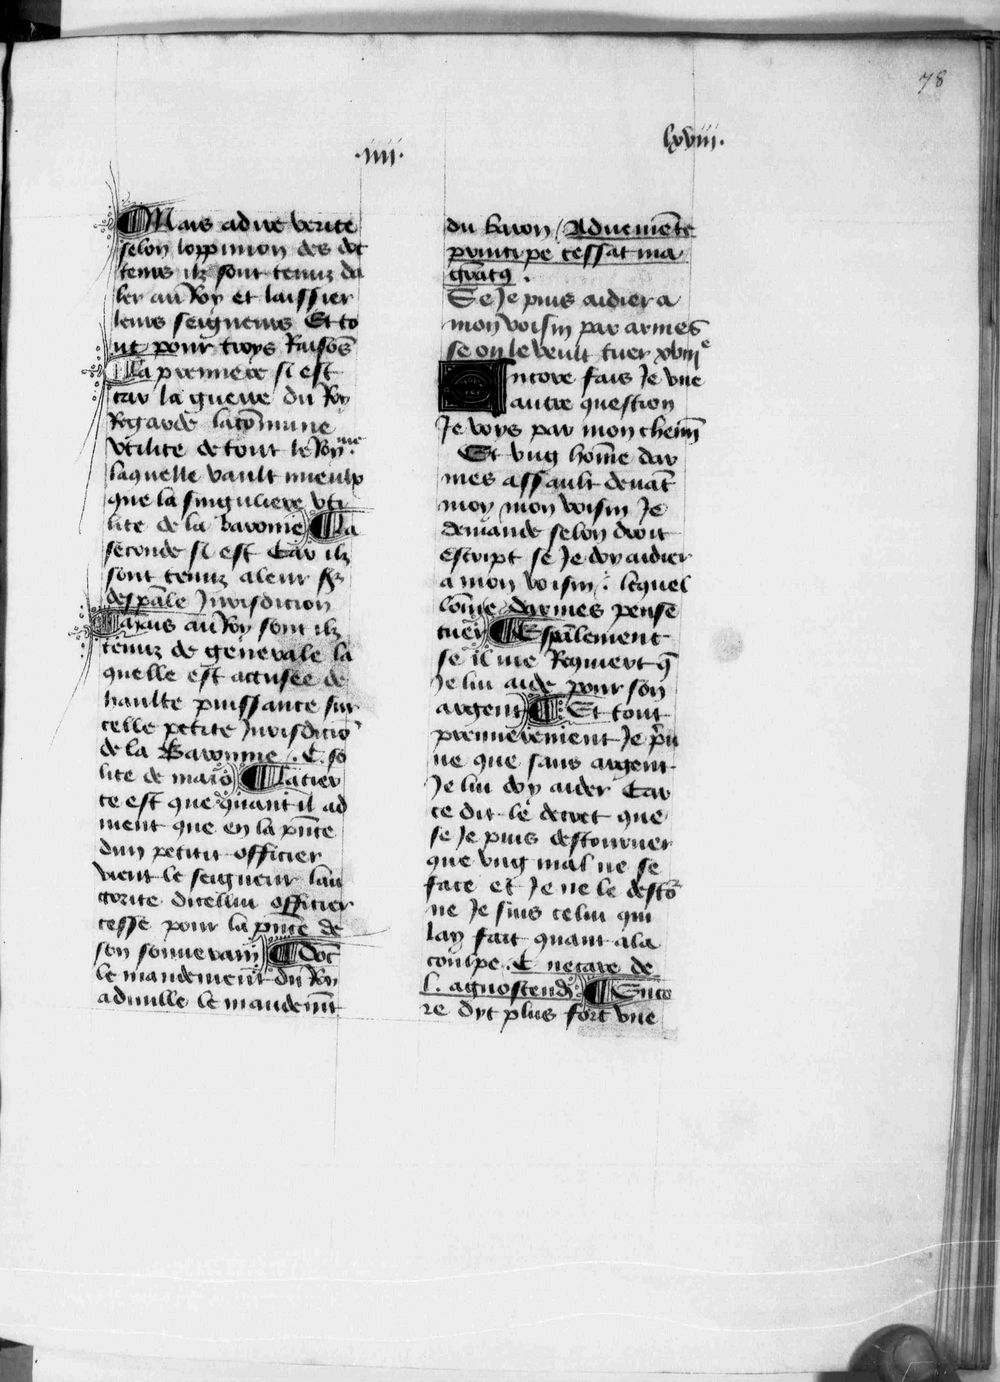 78
.iiii.
lxviii.
Mais a dire verite
selon loppinion des doc
teurs ilz sont tenuz da
ler au Roy et laissier
leurs seigneurs Et ce
pour troys Raisõs
La premiere si est
car la guerre du Roy
Regarde la cõmune
vtilite de tout le Roy.me
laquelle vault mieulx
que la singuliere vti
lite de la baronie La
seconde si est Car ilz
sont tenuz a leur sr
despãle Jurisdicion
Mais au Roy sont ilz
tenuz de generale la
quelle est
haulte puissance sur
celle petite Jurisdiciõ
de la Baronnie . C. so
lite de maio La tier
ce est que quant il ad
uient que en la pñce
dun petitit officier
vient le seigneur lau
torite dicellui officier
cesse pour la pñce de
son souuerain Doc
le mandement du Roy
adnulle le maudemt
du baron / Aduenẽte
principe cessat ma
gratus .
Se Je puis aidier a
mon voisin par armes
se on le veult tuer xviii e
ncore fais Je vne
autre question
Je voys par mon chemĩ
Et vng hõme dar
mes assault deuãt
moy mon voisin Je
demande selon droit
escript se Je doy aidier
a mon voisin . lequel
lõme darmes pense
tuer Espãlement
se il me Requiert q̃
Je lui aide pour son
argent Et tout
premierement Je
ne que sans argent
Je lui doy aider Car
ce dit le decret que
se Je puis destourner
que vng mal ne se
face et Je ne le desto
ne Je suis celui qui
lay fait quant a la
coulpe . C necare de
l. agnoscend. Enco
re dyt plus fort vne